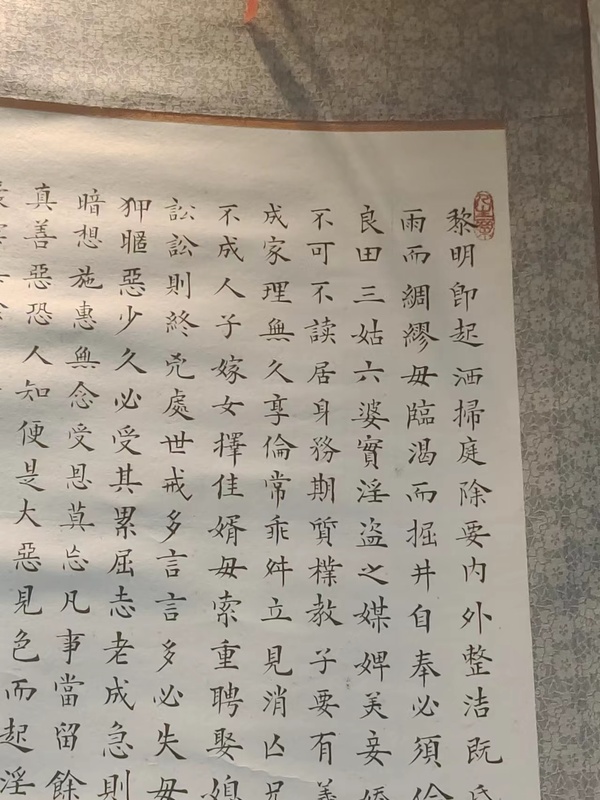 黎明即起洒掃庭除要内外整洁既昏
雨而綢繆毋臨渴而掘井自奉必須儉
良田三姑六婆實淫盗之媒婢美妾嬌
不可不读居身務期質樸教子要有義
成家理無久享倫常乖舛立見消亾兄
不成人子嫁女擇佳婿毋索重聘娶媳
訟訟則終凶處世戒多言言多必失毋
狎暱惡少久必受其累屈志老成急則
暗想施惠無念受恩莫忘凡事當留餘
真善惡恐人知便是大惡見色而起淫